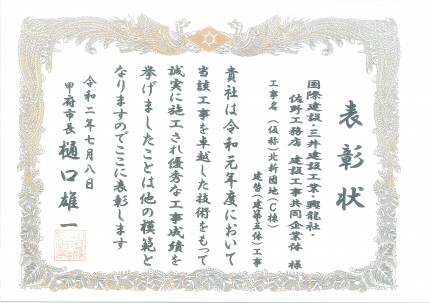 表彰状
国際建設・三井建設工業・興龍社・
佐野工務店 建設工事共同企業体 様
工事名 (仮称)北新団地(C棟)
建替(建築主体)工事
貴社は令和元年度において
当該工事を卓越した技術をもって
誠実に施工され優秀な工事成績を
挙げましたことは他の模範と
なりますのでここに表彰します
令和二年七月八日
甲府市長 樋口雄一